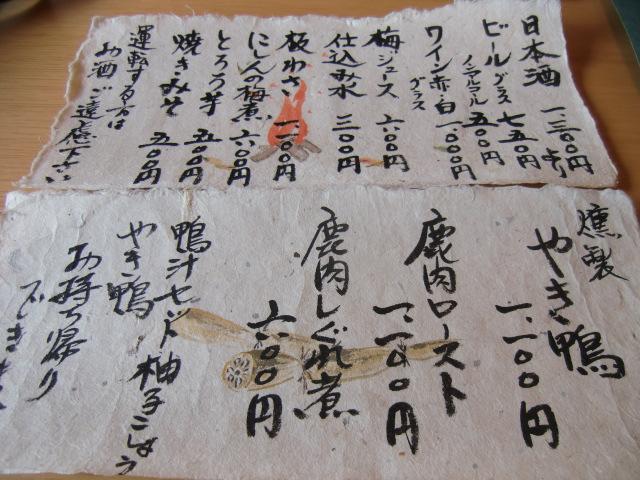 日本酒 一、三〇〇円より
ビール グラス 七五〇円
ノンアルコール 五〇〇円
ワイン赤・白 グラス 一、〇〇〇円
梅ジュース 六〇〇円
仕込み水 三〇〇円
板わさ 一、一〇〇円
にしんの梅煮 六〇〇円
とろろ芋 五〇〇円
焼きみそ 五〇〇円
運転する方は
お酒ご遠慮下さい
燻製
やき鴨 一、一〇〇円
鹿肉ロースト 一、一〇〇円
鹿肉しぐれ煮 六〇〇円
鴨汁セット 柚子こしょう
やき鴨
お持ち帰り
できます